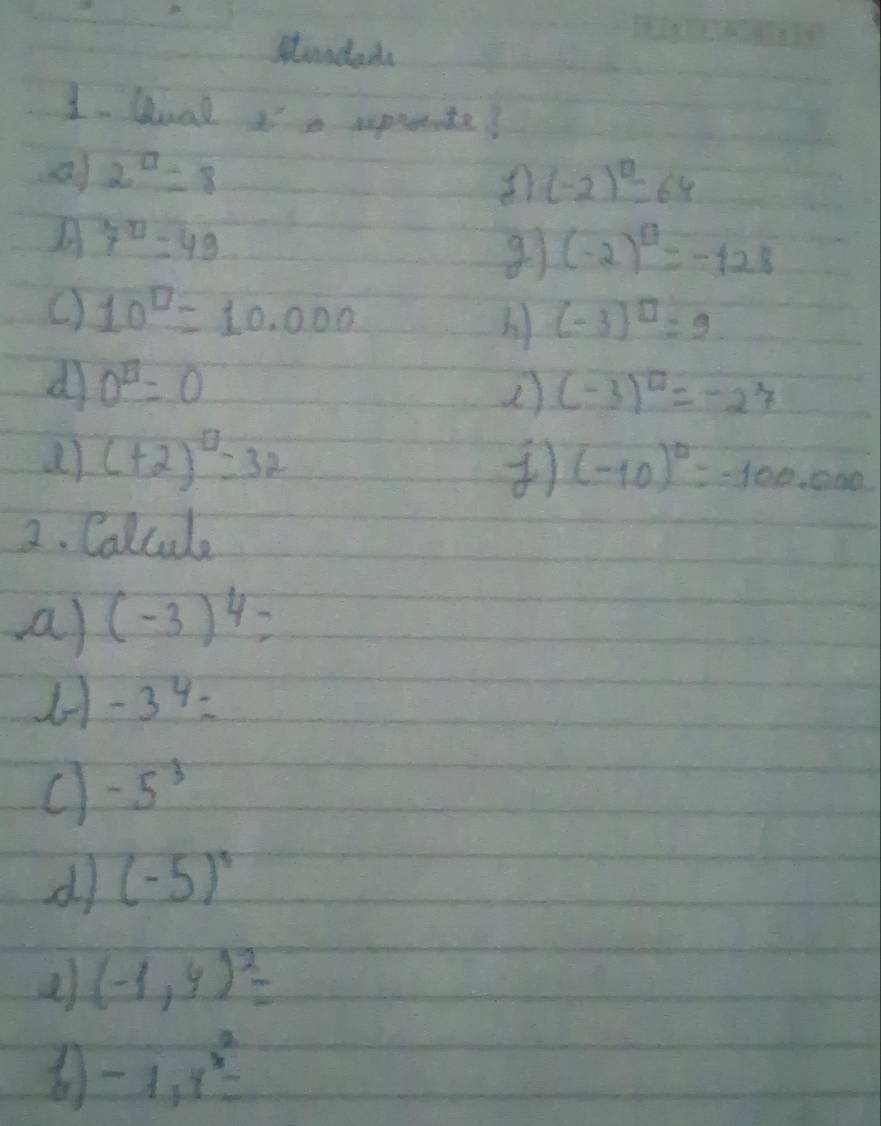 Atividade
1- Qual é o expoente?
a) 2^□ = 8
b) 7^□ = 49
c) 10^□ = 10.000
d) 0^□ = 0
e) (+2)^□ = 32
f) (-2)^□ = 64
g) (-2)^□ = -128
h) (-3)^□ = 9
i) (-3)^□ = -27
j) (-10)^□ = -100.000
2. Calcule
a) (-3)^4 =
b) -3^4 =
c) -5^3
d) (-5)
e) (-1,4)^2 =
f) -1,4^2 =